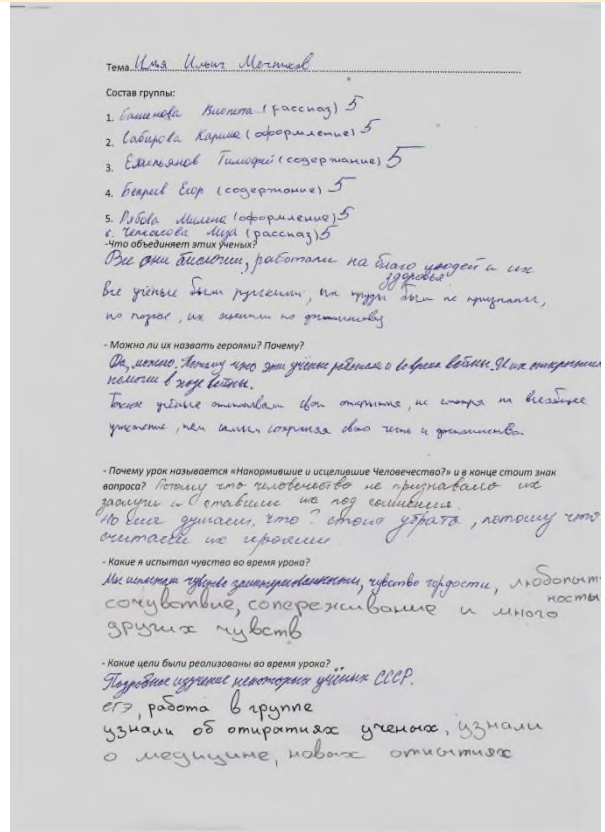 Тема Илья Ильич Мечников
Состав группы:
1. Виолета (рассказ) 5
2. Сабирова Карина (оформление) 5
3. Емельянов Тимофей (содержание) 5
4. Егор (содержание) 5
5. Рябова Милена (оформление) 5
6. Лиза (рассказ) 5
-Что объединяет этих ученых?
Все они биологии, работали на благо людей и их
здоровья
Все учёные были русскими, их труды были не признаны,
но позже, их оценили по достоинству
- Можно ли их назвать героями? Почему?
Да, можно. Потому что эти учёные работали и во время войны. И их открытия
помогли в ходе войны.
Также учёные отстаивали свои открытия, не смотря на всеобщее
, тем самым сохраняя свою честь и достоинство.
- Почему урок называется «Накормившие и исцелившие Человечество?» и в конце стоит знак
вопроса? Потому что человечество не признавало их
заслуги и ставили их под сомнения.
Но мы думаем, что ? стоит убрать, потому что
считаем их героями
- Какие я испытал чувства во время урока?
Мы испытали чувство заинтересованности, чувство гордости, любопыт-
ность
сочувствие, сопереживание и много
других чувств
- Какие цели были реализованы во время урока?
Подробное изучение некоторых учёных СССР.
егэ, работа в группе
узнали об ученых, узнали
о медицине, новых